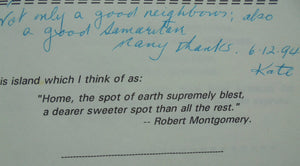 Not only a good neighbour, also
a good Samaritan
Many thanks. 6.12.94
Kate
is island which I think of as:
"Home, the spot of earth supremely blest,
a dearer sweeter spot than all the rest."
-- Robert Montgomery.